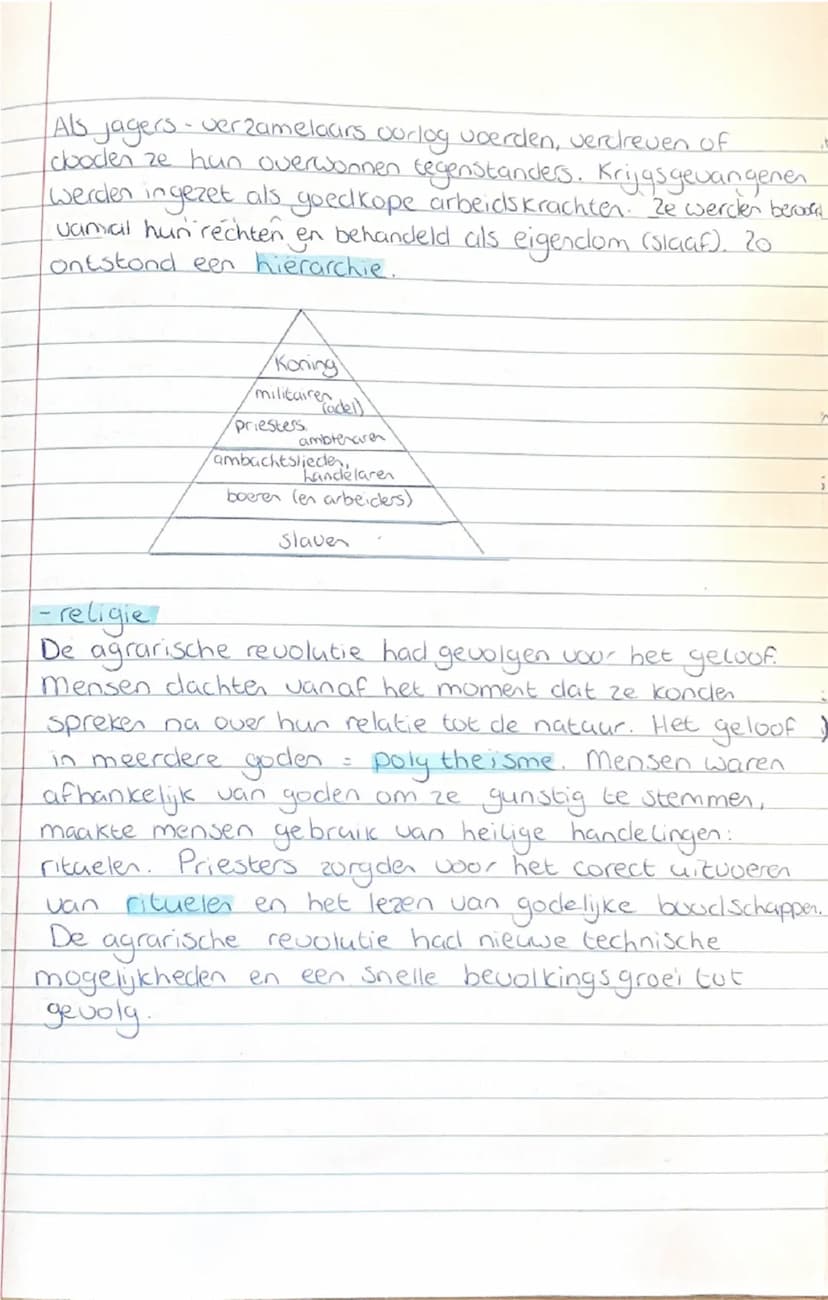 Als jagers - verzamelaars oorlog voerden, verdreven of
doden ze hun overwonnen tegenstanders. Krijgsgevangenen
werden ingezet als goedkope arbeidskrachten. Ze werden beroofd
vanal hun rechten en behandeld als eigendom (slaaf). Zo
ontstond een hiërarchie.
Koning
militairen
(adel)
priesters
ambtenaren
ambachtslieden,
handelaren
boeren (en arbeiders)
slaven
- religie
De agrarische revolutie had gevolgen voor het geloof.
Mensen dachten vanaf het moment dat ze konden
spreken na over hun relatie tot de natuur. Het geloof
in meerdere goden = polytheïsme. Mensen waren
afhankelijk van goden om ze gunstig te stemmen,
maakte mensen gebruik van heilige handelingen:
rituelen. Priesters zorgden voor het corect uitvoeren
van rituelen en het lezen van godelijke boodschappen.
De agrarische revolutie had nieuwe technische
mogelijkheden en een snelle bevolkingsgroei tot
gevolg.